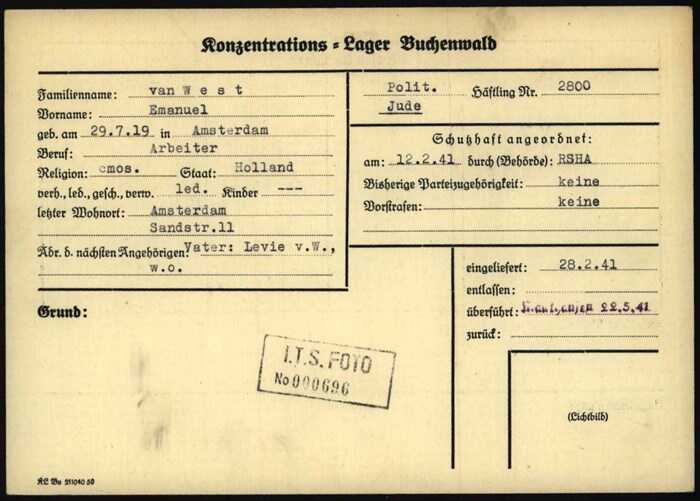 Konzentrations-Lager Buchenwald
Familienname: van W e s t
Vorname: Emanuel
geb. am 29.7.19 in Amsterdam
Beruf: Arbeiter
Religion: mos. Staat: Holland
verh., led., gesch., verw. led. Kinder ---
letzter Wohnort: Amsterdam
Sandstr.11
Adr. d. nächsten Angehörigen: Vater: Levie v.W.,
w.o.
Grund:
Polit. Häftling Nr. 2800
Jude
Schutzhaft angeordnet:
am: 12.2.41 durch (Behörde): RSHA
Bisherige Parteizugehörigkeit: keine
Vorstrafen: keine
eingeliefert: 28.2.41
entlassen:
überführt: Mauthausen 22.5.41
zurück:
(Lichtbild)
I.T.S. FOTO
No 000696
KL Bu